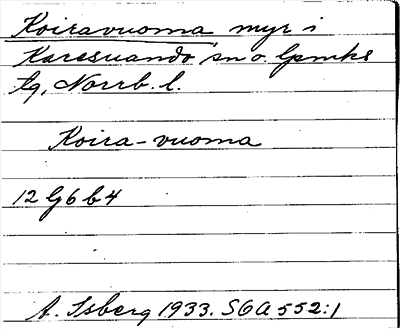 Koiravuoma myr i
Karesuando sn o. lpmks
tg, Norrb. l.
Koira-vuoma
12 G 6 b 4
A. Isberg 1933. SOA 552:1